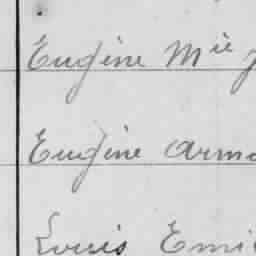 Eugène Mie
Eugène Arma
Louis Emi